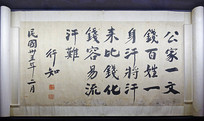 公家一文
錢百姓一
身汗將汗
來比錢化
錢容易流
汗難
行知
民國卅五年一二月